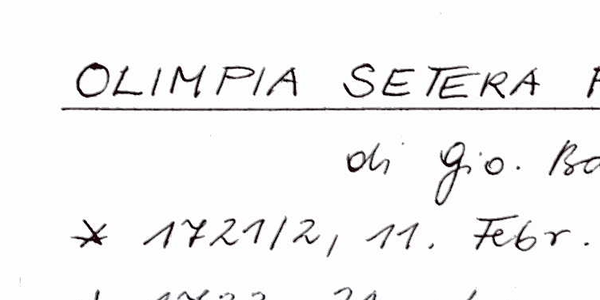 OLIMPIA SETERA
di Gio.
* 1721/2, 11. Febr.